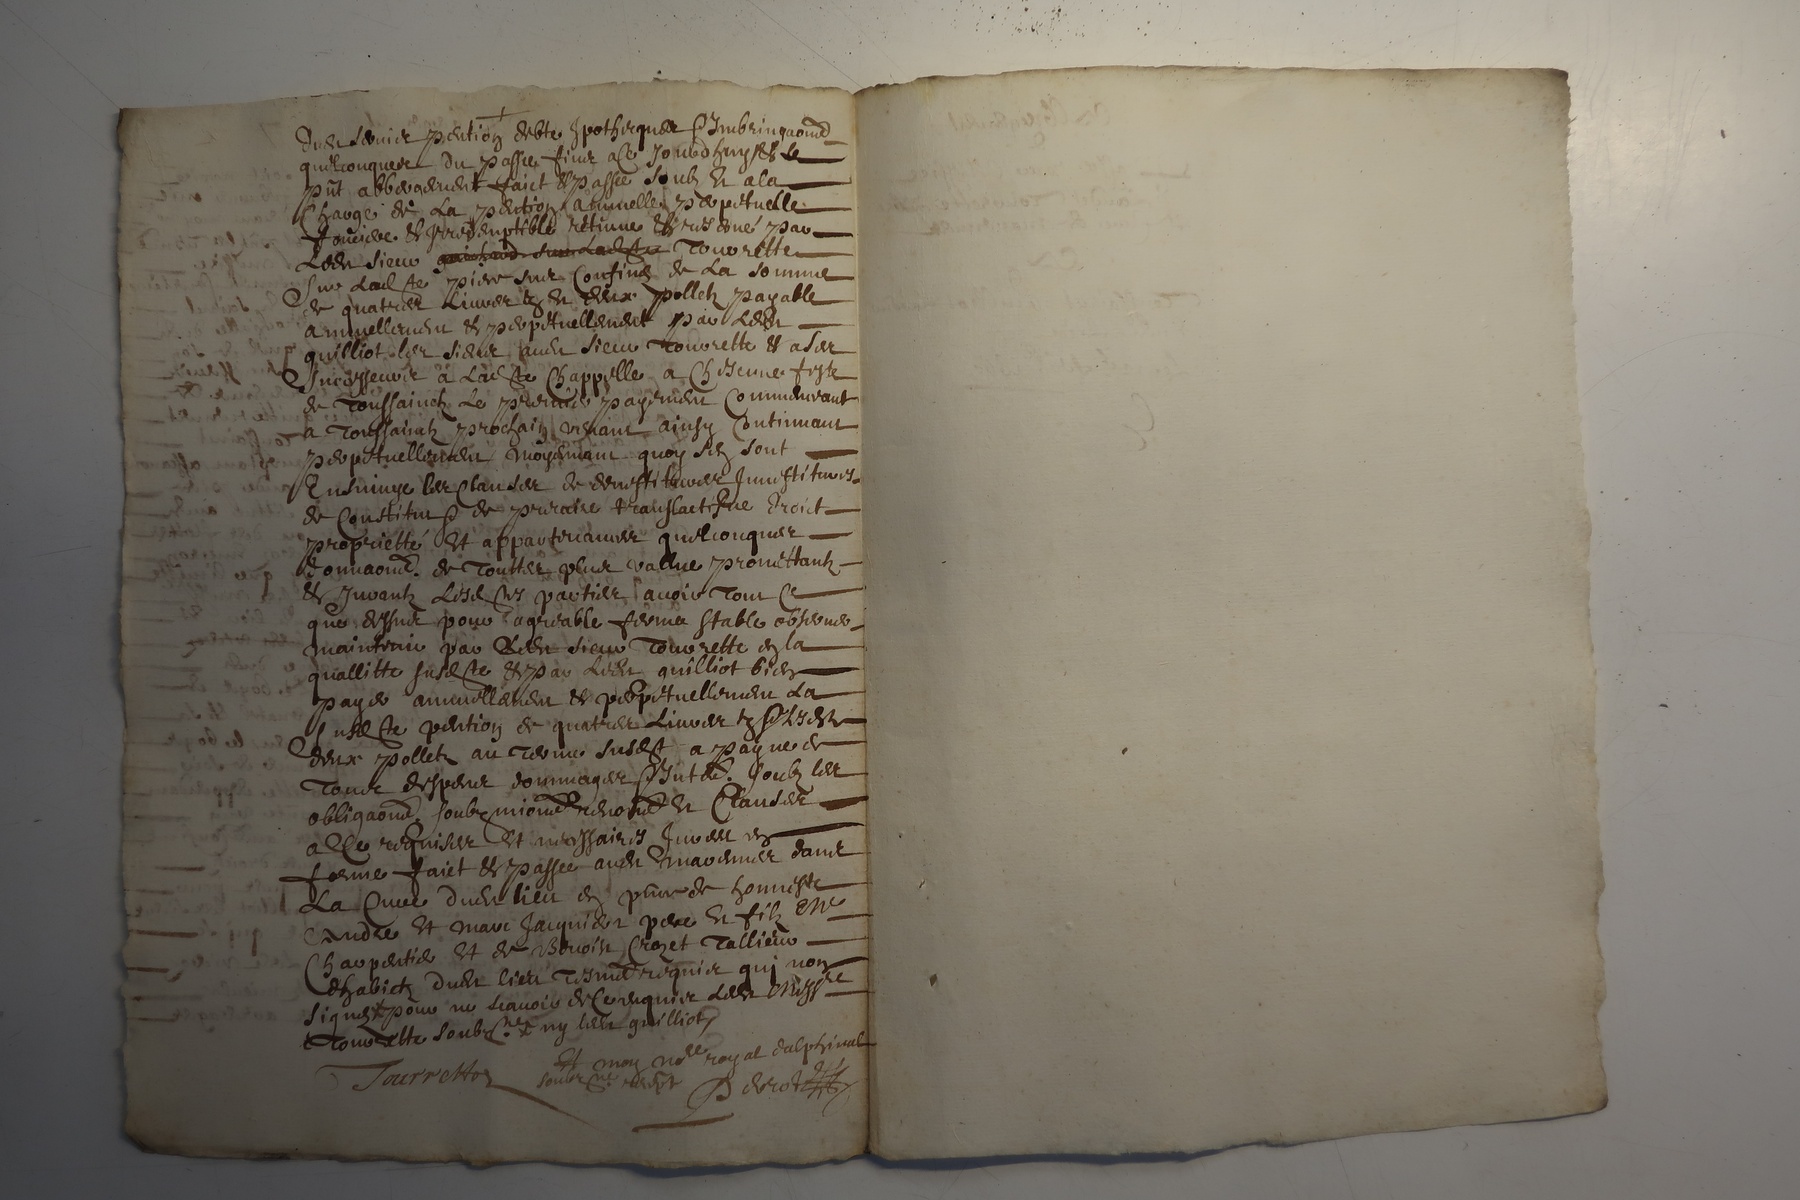 dueu servier pention debte Ipothecques & Imbringaonz
quelconques du passé jusques a ce jourdhuy & le
pnt abbergement faict & passé soubz et a la
charge de la pention annuelle perpetuelle
fonciere & Irredemptible retenue & reservé par
Ledt sieur Tourrette
sur Ladte piece sus confine de la somme
de quattre Livres tz et deux polletz payable
annuellement & perpetuellement par Ledt
quilliot les siens audt sieur Tourrette & a ses
successeurs a Ladte Chappelle a chescune feste
de Toussainctz Le premier payement Commencant
a Toussainctz prochain venant ainsy Continuant
perpetuellement moyenant quoy se sont
Ensuivye les clauses de devestitures Investitures
de Constitut & de precaire translactifve droict
proprietté et appartenances quelconques
donnaonz de touttes plus vallue promettantz
& Jurantz Lesdtes parties avoir tout ce
que dessus pour agreable ferme stable observer
maintenir par Ledt sieur Tourrette en la
quallitte susdte & par Ledt quilliot bien
payer annuellement & perpetuellement La
susdte pention de quattre Livres tz &
deux polletz au terme susdt a payne de
Tous despens dommages & Inthz soubz les
obligaonz soubzmionz renonz et Clauses
a ce requises et necessaires Jurees en
forme faict & passé audt dans
La dudt lieu en pnce de honneste
Andre et Marc Jacquier pere et filz Me
Charpentier et de Benoist Crozet Tallieur
& habitz dudt lieu tesmz requis qui nont
signez pour ne scavoir de ce requis Ledt Messre
Tourrette soubzne ny ledt quilliot
Et moy nore royal dalphinal
Tourrette
soubzne recept